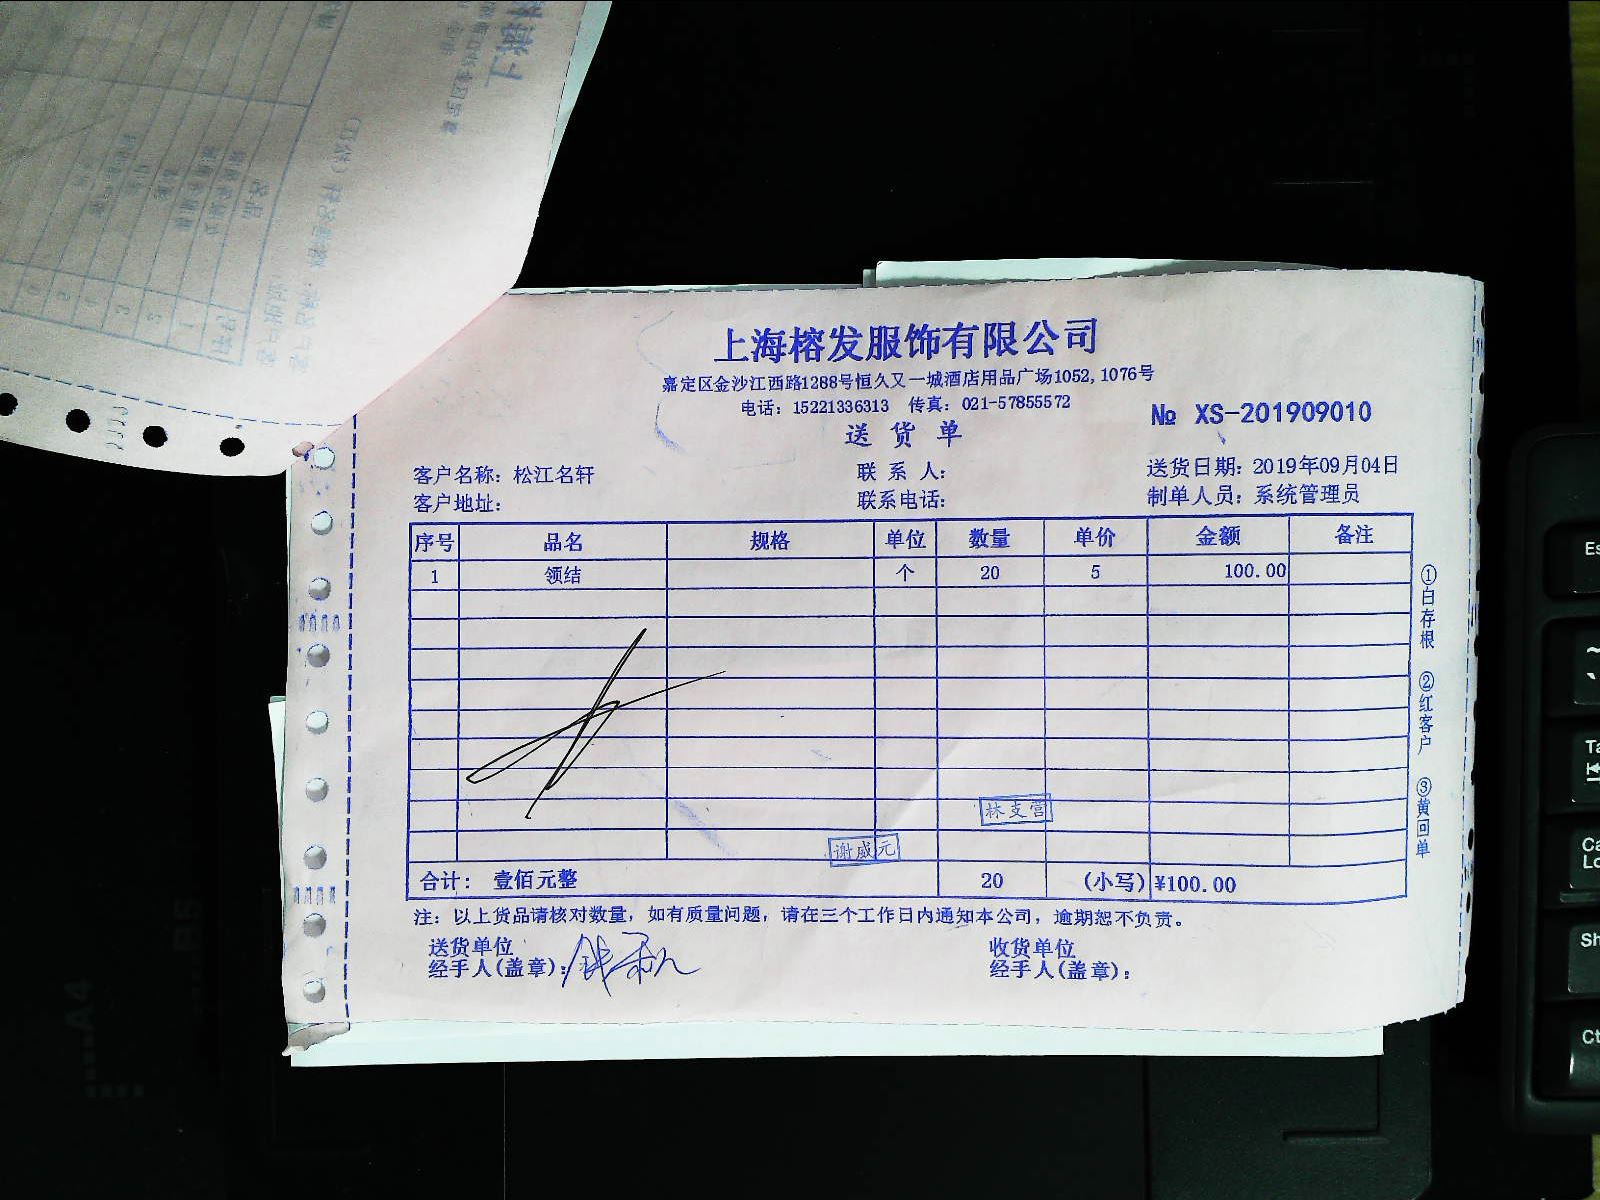 上海榕发服饰有限公司
嘉定区金沙江西路1288号恒久又一城酒店用品广场1052,1076号
电话：15221336313 传真：021-57855572
№ XS-201909010
送货单
客户名称：松江名轩 联系人： 送货日期：2019年09月04日
客户地址： 联系电话： 制单人员：系统管理员
序号 品名 规格 单位 数量 单价 金额 备注
1 领结 个 20 5 100.00
林支营
谢威元
合计：壹佰元整 20 (小写) ¥100.00
注：以上货品请核对数量，如有质量问题，请在三个工作日内通知本公司，逾期恕不负责。
送货单位 收货单位
经手人(盖章)： 经手人(盖章)：
①白存根 ②红客户 ③黄回单
A4
B5
Es
Ta
Ca
Lo
Sh
Ct